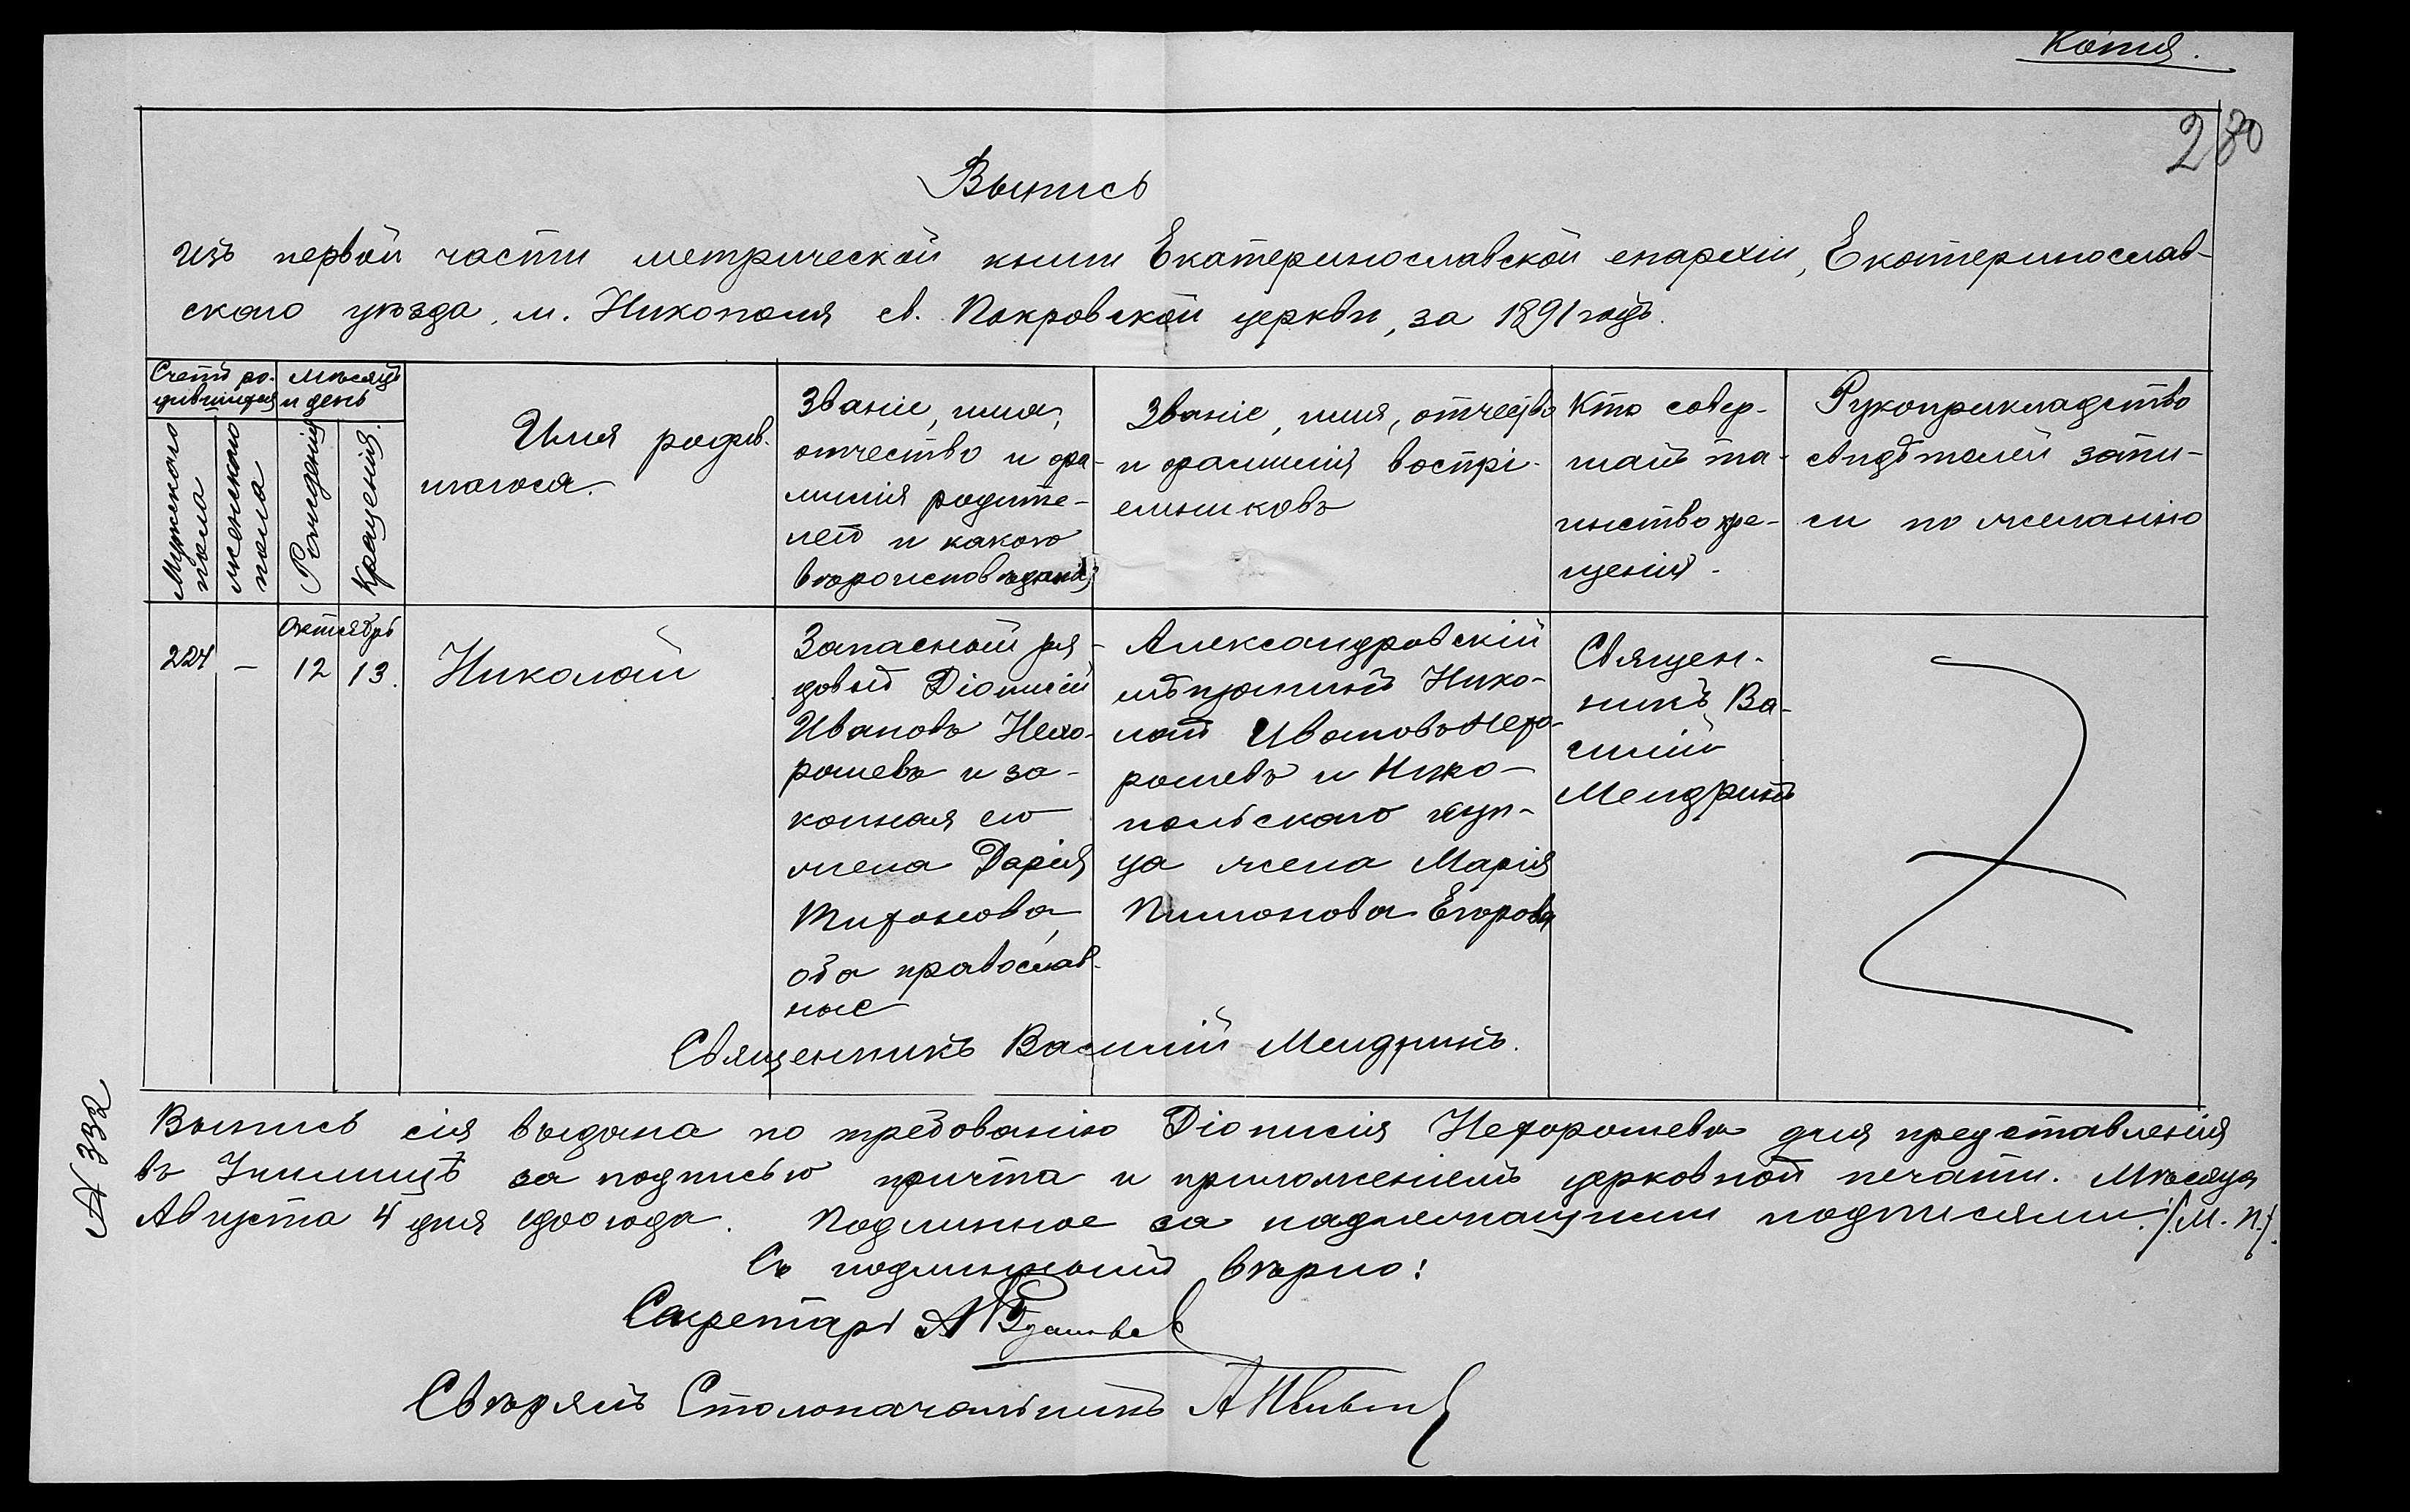 Копія.
280
Выпись
изъ первой части метрической книги Екатеринославской епархіи, Екатеринослав-
скаго уѣзда, м. Никополя св. Покровской церкви, за 1891 годъ.
Счетъ ро-
дившихся
Мужескаго
пола
женскаго
пола
Мѣсяцъ
и день
Рожденія
Крещенія.
Имя родив-
шагося.
Званіе, имя,
отчество и фа-
милія родите-
лей и какого
вѣроисповѣданія
Званіе, имя, отчество
и фамилія воспрі-
емниковъ
Кто совер-
шалъ та-
инство кре-
щенія.
Рукоприкладство
свидѣтелей запи-
си по желанію
224 –
Октябрь
12 13.
Николай
Запасный ря-
довый Діонисій
Ивановъ Нехо-
рошевъ и за-
конная его
жена Дарія
Тихонова,
оба православ-
ные
Александровскій
мѣщанинъ Нико-
лай Ивановъ Нехо-
рошевъ и Нико-
польскаго куп-
ца жена Марія
Пимонова Егорова
Священ-
никъ Ва-
силій
Мендринъ
Священникъ Василій Мендринъ.
№ 332
Выпись сія выдана по требованію Діонисія Нехорошева для представленія
въ Училище за подписью причта и приложеніемъ церковной печати. Мѣсяца
Августа 4 дня 1900 года. Подлинное за надлежащими подписями. /М. П./.
Съ подлинной вѣрно:
Секретарь А
Свѣрялъ Столоначальникъ А